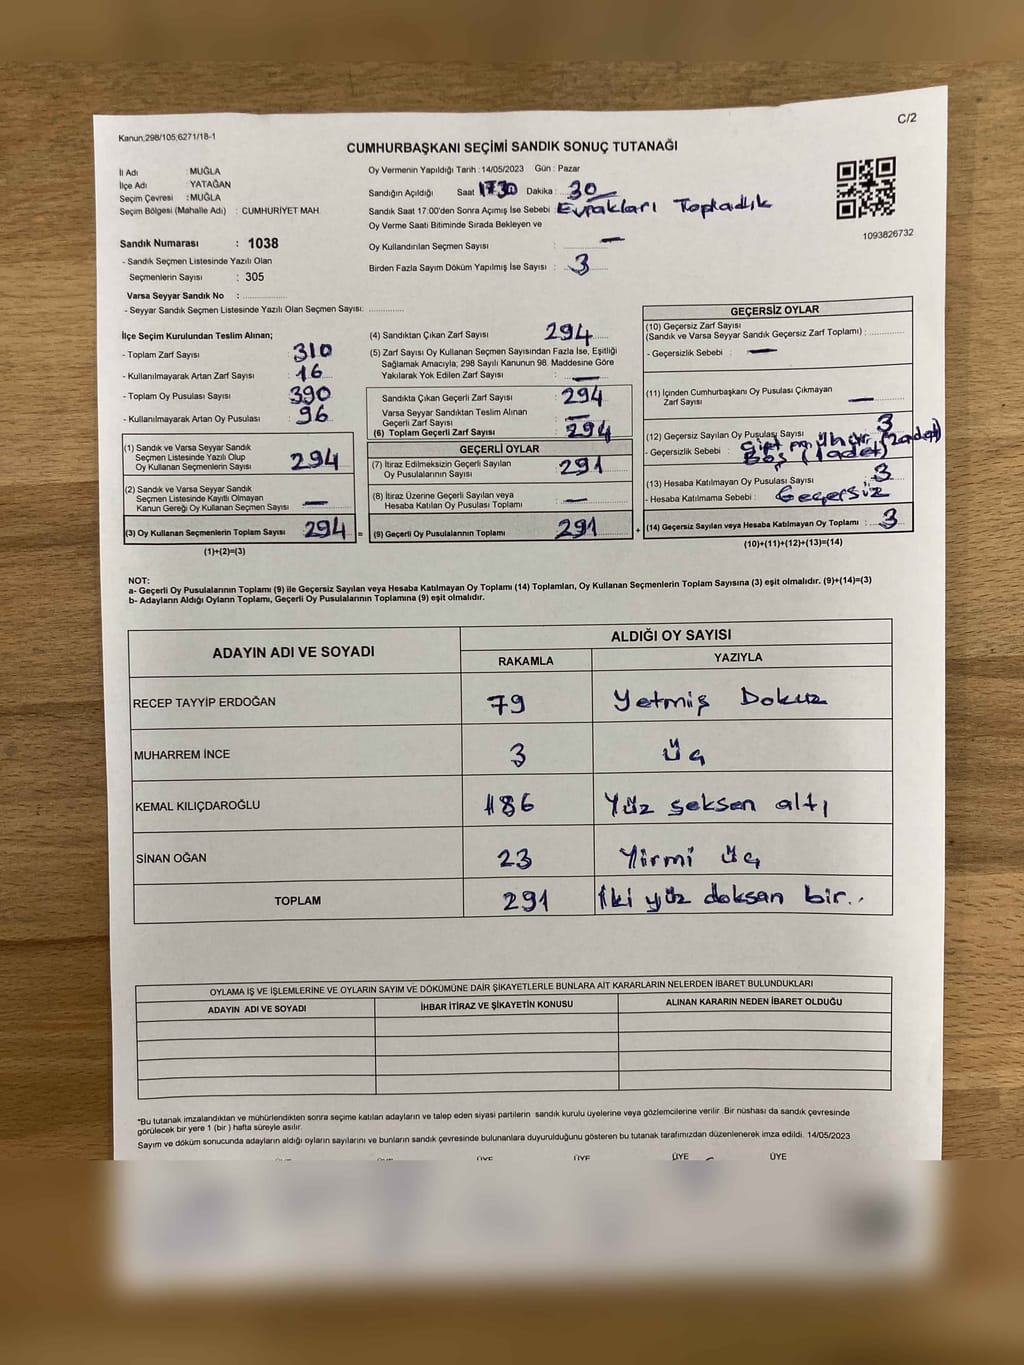 Kanun:298/105;6271/18-1
C/2
CUMHURBAŞKANI SEÇİMİ SANDIK SONUÇ TUTANAĞI
İl Adı : MUĞLA
İlçe Adı : YATAĞAN
Seçim Çevresi : MUĞLA
Seçim Bölgesi (Mahalle Adı) : CUMHURİYET MAH.
Sandık Numarası : 1038
- Sandık Seçmen Listesinde Yazılı Olan
Seçmenlerin Sayısı : 305
Varsa Seyyar Sandık No :
- Seyyar Sandık Seçmen Listesinde Yazılı Olan Seçmen Sayısı:
Oy Vermenin Yapıldığı Tarih : 14/05/2023 Gün : Pazar
Sandığın Açıldığı Saat 1730 Dakika : 30
Sandık Saat 17:00'den Sonra Açımış İse Sebebi Evrakları Topladık
Oy Verme Saati Bitiminde Sırada Bekleyen ve
Oy Kullandırılan Seçmen Sayısı : —
Birden Fazla Sayım Döküm Yapılmış İse Sayısı : 3
1093826732
İlçe Seçim Kurulundan Teslim Alınan;
- Toplam Zarf Sayısı : 310
- Kullanılmayarak Artan Zarf Sayısı : 16
- Toplam Oy Pusulası Sayısı : 390
- Kullanılmayarak Artan Oy Pusulası : 96
(1) Sandık ve Varsa Seyyar Sandık
Seçmen Listesinde Yazılı Olup
Oy Kullanan Seçmenlerin Sayısı : 294
(2) Sandık ve Varsa Seyyar Sandık
Seçmen Listesinde Kayıtlı Olmayan
Kanun Gereği Oy Kullanan Seçmen Sayısı : —
(3) Oy Kullanan Seçmenlerin Toplam Sayısı : 294 =
(1)+(2)=(3)
(4) Sandıktan Çıkan Zarf Sayısı 294
(5) Zarf Sayısı Oy Kullanan Seçmen Sayısından Fazla İse, Eşitliği
Sağlamak Amacıyla; 298 Sayılı Kanunun 98. Maddesine Göre
Yakılarak Yok Edilen Zarf Sayısı : —
Sandıkta Çıkan Geçerli Zarf Sayısı : 294
Varsa Seyyar Sandıktan Teslim Alınan
Geçerli Zarf Sayısı : —
(6) Toplam Geçerli Zarf Sayısı : 294
GEÇERLİ OYLAR
(7) İtiraz Edilmeksizin Geçerli Sayılan
Oy Pusulalarının Sayısı : 291
(8) İtiraz Üzerine Geçerli Sayılan veya
Hesaba Katılan Oy Pusulası Toplamı : —
(9) Geçerli Oy Pusulalarının Toplamı : 291 +
GEÇERSİZ OYLAR
(10) Geçersiz Zarf Sayısı
(Sandık ve Varsa Seyyar Sandık Geçersiz Zarf Toplamı) :
- Geçersizlik Sebebi : —
(11) İçinden Cumhurbaşkanı Oy Pusulası Çıkmayan
Zarf Sayısı : —
(12) Geçersiz Sayılan Oy Pusulası Sayısı : 3
- Geçersizlik Sebebi : Çift mühür (2 adet)
Boş (1 adet)
(13) Hesaba Katılmayan Oy Pusulası Sayısı : 3
- Hesaba Katılmama Sebebi : Geçersiz
(14) Geçersiz Sayılan veya Hesaba Katılmayan Oy Toplamı : 3
(10)+(11)+(12)+(13)=(14)
NOT:
a- Geçerli Oy Pusulalarının Toplamı (9) ile Geçersiz Sayılan veya Hesaba Katılmayan Oy Toplamı (14) Toplamları, Oy Kullanan Seçmenlerin Toplam Sayısına (3) eşit olmalıdır. (9)+(14)=(3)
b- Adayların Aldığı Oyların Toplamı, Geçerli Oy Pusulalarının Toplamına (9) eşit olmalıdır.
ADAYIN ADI VE SOYADI ALDIĞI OY SAYISI
RAKAMLA YAZIYLA
RECEP TAYYİP ERDOĞAN 79 Yetmiş Dokuz
MUHARREM İNCE 3 üç
KEMAL KILIÇDAROĞLU 186 Yüz seksen altı
SİNAN OĞAN 23 Yirmi üç
TOPLAM 291 İki yüz doksan bir..
OYLAMA İŞ VE İŞLEMLERİNE VE OYLARIN SAYIM VE DÖKÜMÜNE DAİR ŞİKAYETLERLE BUNLARA AİT KARARLARIN NELERDEN İBARET BULUNDUKLARI
ADAYIN ADI VE SOYADI İHBAR İTİRAZ VE ŞİKAYETİN KONUSU ALINAN KARARIN NEDEN İBARET OLDUĞU
"Bu tutanak imzalandıktan ve mühürlendikten sonra seçime katılan adayların ve talep eden siyasi partilerin sandık kurulu üyelerine veya gözlemcilerine verilir. Bir nüshası da sandık çevresinde
görülecek bir yere 1 (bir) hafta süreyle asılır.
Sayım ve döküm sonucunda adayların aldığı oyların sayılarını ve bunların sandık çevresinde bulunanlara duyurulduğunu gösteren bu tutanak tarafımızdan düzenlenerek imza edildi. 14/05/2023
ÜYE ÜYE ÜYE ÜYE ÜYE ÜYE